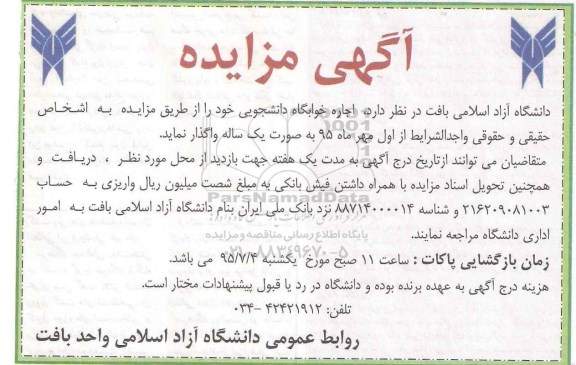 آگهی مزایده
دانشگاه آزاد اسلامی بافت در نظر دارد اجاره خوابگاه دانشجویی خود را از طریق مزایده به اشخاص
حقیقی و حقوقی واجدالشرایط از اول مهر ماه ۹۵ به صورت یک ساله واگذار نماید.
متقاضیان می توانند ازتاریخ درج آگهی به مدت یک هفته جهت بازدید از محل مورد نظر ، دریافت و
همچنین تحویل اسناد مزایده با همراه داشتن فیش بانکی به مبلغ شصت میلیون ریال واریزی به حساب
۲۱۶۲۰۹۰۸۱۰۰۳ و شناسه ۸۸۷۱۴۰۰۰۰۱۴ نزد بانک ملی ایران بنام دانشگاه آزاد اسلامی بافت به امور
اداری دانشگاه مراجعه نمایند.
زمان بازگشایی پاکات : ساعت ۱۱ صبح مورخ یکشنبه ۹۵/۷/۴ می باشد.
هزینه درج آگهی به عهده برنده بوده و دانشگاه در رد یا قبول پیشنهادات مختار است.
تلفن: ۴۲۴۲۱۹۱۲ -۰۳۴
روابط عمومی دانشگاه آزاد اسلامی واحد بافت
ParsNamadData
پایگاه اطلاع رسانی مناقصه و مزایده
۰۲۱-۸۸۳۴۹۶۷۰-۵